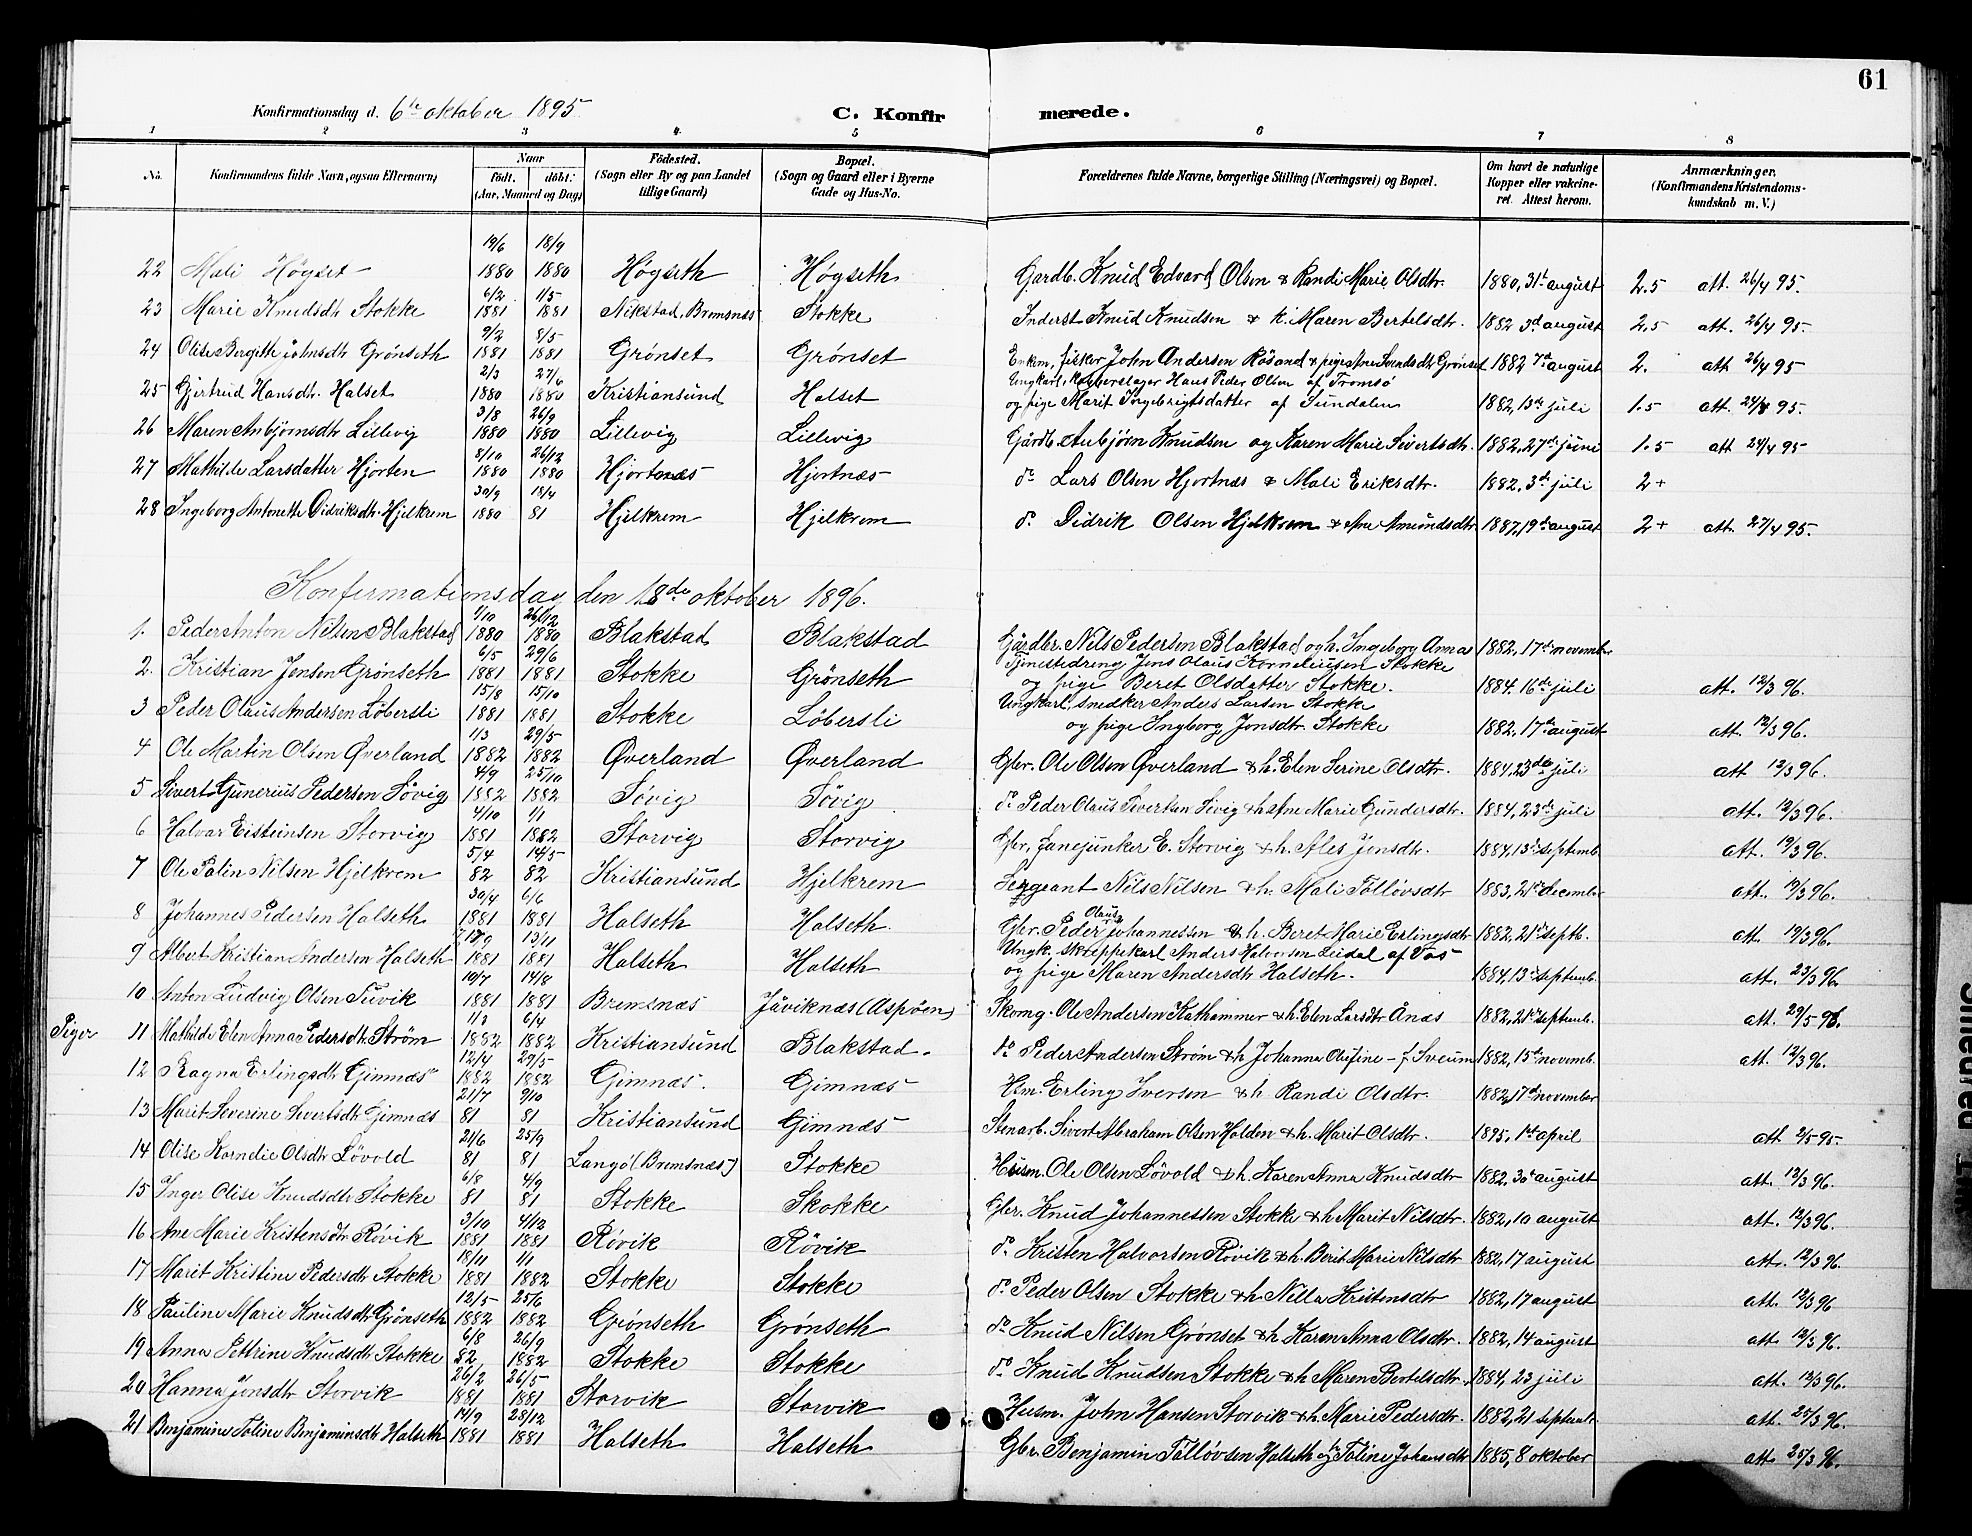 61
Konfirmationsdag d. 6te oktober 1895 C. Konfirmerede.
1 2 3 4 5 6 7 8
No. Konfirmandens fulde Navn, ogsaa Efternavn) Naar født. døbt. (Aar, Maaned og Dag) Fødested. (Sogn eller By og paa Landet tillige Gaard) Bopæl. (Sogn og Gaard eller i Byerne Gade og Hus-No. Forældrenes fulde Navne, borgerlige Stilling (Næringsvei) og Bopæl. Om havt de naturlige Kopper eller vakcineret. Attest herom. Anmærkninger, (Konfirmandens Kristendomskundskab m. V.)
22 Mali Høgset 19/6 1880 18/9 1880 Høgseth Høgseth Gardb. Knud Edvard Olsen & Randi Marie Olsdtr. 1880, 31te august 2.5 att. 26/4 95.
23 Marie Knudsdtr Stokke 6/2 1881 1/5 1881 Nikstad, Bremsnæs Stokke Inderst Knud Knudsen & k. Maren Bertelsdtr. 1882 3d august 2.5 att. 26/4 95.
24 Olise Bergitte Johnsdtr Grönseth 9/2 1881 8/5 1881 Grönset Grönset Enkm, fisker John Andersen Rösand & pige Ane Svendsdtr Grönset 1882 7d august 2. att 26/4 95
25 Gjertrud Hansdtr. Halset 2/3 1880 27/6 1880 Kristiansund Halset Ungkarl, Kobberslager Hans Peder Olsen af Tromsø
og pige Marit Ingebrigtsdatter af Sundalen 1882, 13de juli 1.5 att. 24/4 95.
26 Maren Anbjørnsdtr Lillevig 3/8 1880 26/9 1880 Lillevig Lillevig Gårdb. Anbjørn Knudsen og Karen Marie Sivertsdtr. 1882, 27de juni 1.5 att 24/4 95
27 Mathilde Larsdatter Hjorten 8/10 1880 26/12 1880 Hjortnæs Hjortnæs do Lars Olsen Hjortnæs & Mali Eriksdtr. 1882, 3d juli 2+
28 Ingeborg Antonette Didriksdtr. Hjelkrem 30/9 1880 18/4 81 Hjelkrem Hjelkrem do Didrik Olsen Hjelkrem & Ane Amundsdtr 1887, 19de august 2+ att. 27/4 95.
Konfirmationsdag den 18de oktober 1896.
1. Peder Anton Nilsen Blakstad 1/10 1880 26/12 1880 Blakstad Blakstad Gårdbr. Nils Pedersen Blakstad og h. Ingeborg Annas 1882, 17de novembr
2. Kristian Jensen Grönseth 6/5 1881 29/6 1881 Stokke Grönseth Tjenestedreng Jens Olaus Korneliussen Stokke
og pige Beret Olsdatter Stokke. 1884. 16de juli att. 12/3 96.
3 Peder Olaus Andersen Løbersli 15/8 1881 15/10 1881 Stokke Löbersli Ungkarl, Snedker Anders Larsen Stokke
og pige Ingborg Jonsdtr. Stokke 1882, 17de august att. 12/3 96.
4 Ole Martin Olsen Øverland 1/3 1882 29/5 1882 Øverland Øverland Gbr. Ole Olsen Øverland & h. Elen Serine Olsdtr. 1884, 23de juli att 12/3 96.
5 Sivert Gunerius Pedersen Sövig 4/9 1882 25/10 1882 Sövig Sövig do Peder Olaus Sivertsen Sövig & h Ane Marie Gundersdtr. 1884, 23de juli att. 12/3 96.
6 Halvar Eisteinsen Storvig 4/10 1881 1/1 1882 Storvig Storvig Gbr. fanejunker E. Storvig & h. Ales Jonsdtr. 1884, 13de septemb. att. 12/3 96.
7 Ole Palin Nilsen Hjelkrem 5/4 82 14/5 82 Kristiansund Hjelkrem Sergeant Nils Nilsen & h. Mali Tollövsdtr 1883, 21de december att. 12/3 96.
8 Johannes Pedersen Halseth 30/4 1881 6/6 1881 Halseth Halseth. Gbr. Peder Olaus Johannessen & h. Beret Marie Erlingsdtr 1882, 21de septb. att. 12/3 96.
9 Albert Kristian Andersen Halseth 1881 13/11 1881 Halseth Halseth Ungk. skreppekarl Anders Halvorsen af Vos
og pige Maren Andersdtr Halseth. 1884, 13de septemb. att. 23/3 96.
10 Anton Ludvig Olsen 10/7 1881 14/8 1881 Bremsnæs Jüviknæs (Aspøen) Skomg. Ole Andersen Kathammer & h. Elen Larsdtr Ånæs 1882, 21de septemb. att. 29/5 96.
Piger 11 Mathilde Elen Anna Pedersdtr. Strøm 1/3 1882 6/4 1882 Kristiansund Blakstad. do Peder Andersen Strøm & h Johanna Olufine f Sveum 1882, 15de novemb. att. 12/3 96.
12 Ragna Erlingsdtr Gimnæs 12/4 1882 29/5 1882 Gimnæs. Gimnæs Hsm. Erling Iversen & h Randi Olsdtr. 1882, 17de november
13 Marit Severine Sivertsdtr Gimnæs 21/7 81 9/10 81 Kristiansund Gimnæs Stenarb. Sivert Abraham Olsen Holden & h. Marit Olsdtr. 1895, 1st april att 2/5 95.
14 Olise Kornelie Olsdtr Lövold 21/6 81 25/9 81 Langö (Bremsnæs) Stokke Husm. Ole Olsen Lövold & h. Karen Anna Knudsdtr 1882, 30te august att. 12/3 96.
15 Inger Olise Knudsdtr Stokke 6/8 81 4/9 81 Stokke Skokke Gbr. Knud Johannessen Stokke & h Marit Nilsdtr. 1882, 10 august att. 12/3 96.
16 Ane Marie Kristensdtr Rövik 3/10 1881 4/12 1881 Rövik Rövik do Kristen Halvorsen Rövik & h. Berit Marie Nilsdtr 1882, 17 august att. 12/3 96.
17 Marit Kristine Pedersdtr Stokke 18/11 1881 1/1 1882 Stokke Stokke do Peder Olsen Stokke & h Nilla Kristensdtr 1882, 17 august att. 12/3 96
18 Pauline Marie Knudsdtr Grönseth 12/5 1882 25/6 1882 Grönseth Grönseth do Knud Nilsen Grönset & h Karen Anna Olsdtr. 1882, 14 august att 12/3 96.
19 Anna Pettrine Knudsdtr Stokke 6/8 82 26/9 1882 Stokke Stokke do Knud Knudsen Stokke & h Maren Bertelsdtr. 1884, 23 juli att. 12/3 96.
20 Hanna Jonsdtr Storvik 26/2 1881 26/5 1881 Storvik Storvik Husm. John Hansen Storvik & h Marie Pedersdtr. 1882, 21 septemb. att. 25/3 96.
21 Benjamine Toline Benjaminsdtr Halseth 14/9 1881 28/12 1881 Halseth Halseth Gbr. Benjamin Tollövsen Halseth og Toline Johansdtr 1885, 8 oktober att. 25/3 96.